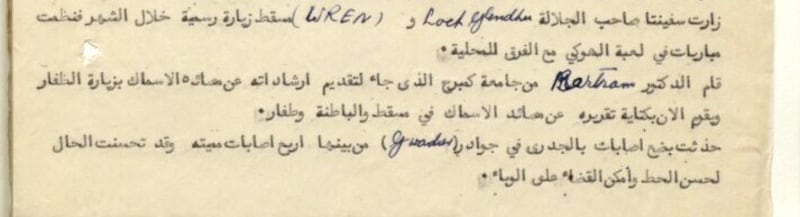 زارت سفينتا صاحب الجلالة Loch Glendhu و (WREN) مسقط زيارة رسمية خلال الشهر فنظمت
مباريات في لعبة الهوكي مع الفرق المحلية .
قام الدكتور Bartram من جامعة كمبرج الذى جاء لتقديم ارشاداته عن مصائد الاسماك بزيارة الظفار
ويقوم الان بكتابة تقريره عن مصائد الاسماك في مسقط والباطنة وظفار .
حدثت بضع اصابات بالجدرى في جوادر (Gwadur) من بينها اربع اصابات مميته وقد تحسنت الحال
لحسن الحظ وأمكن القضاء على الوباء .